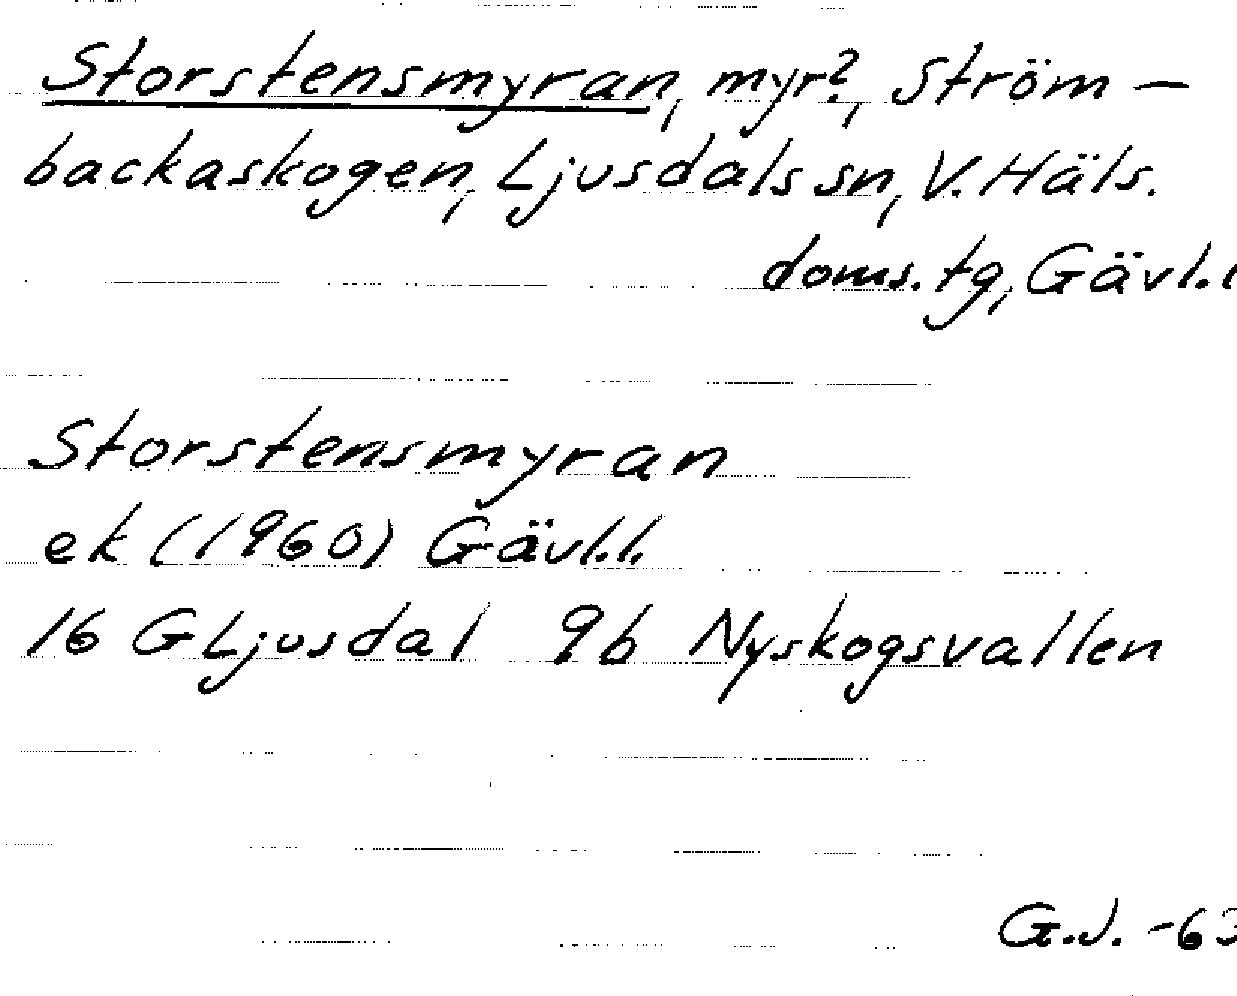 Storstensmyran, myr?, Ström-
backaskogen, Ljusdals sn, V. Häls.
doms. tg, Gävl. l
Storstensmyran
ek (1960) Gävl.l.
16 G Ljusdal 9b Nyskogsvallen
G.J. -63